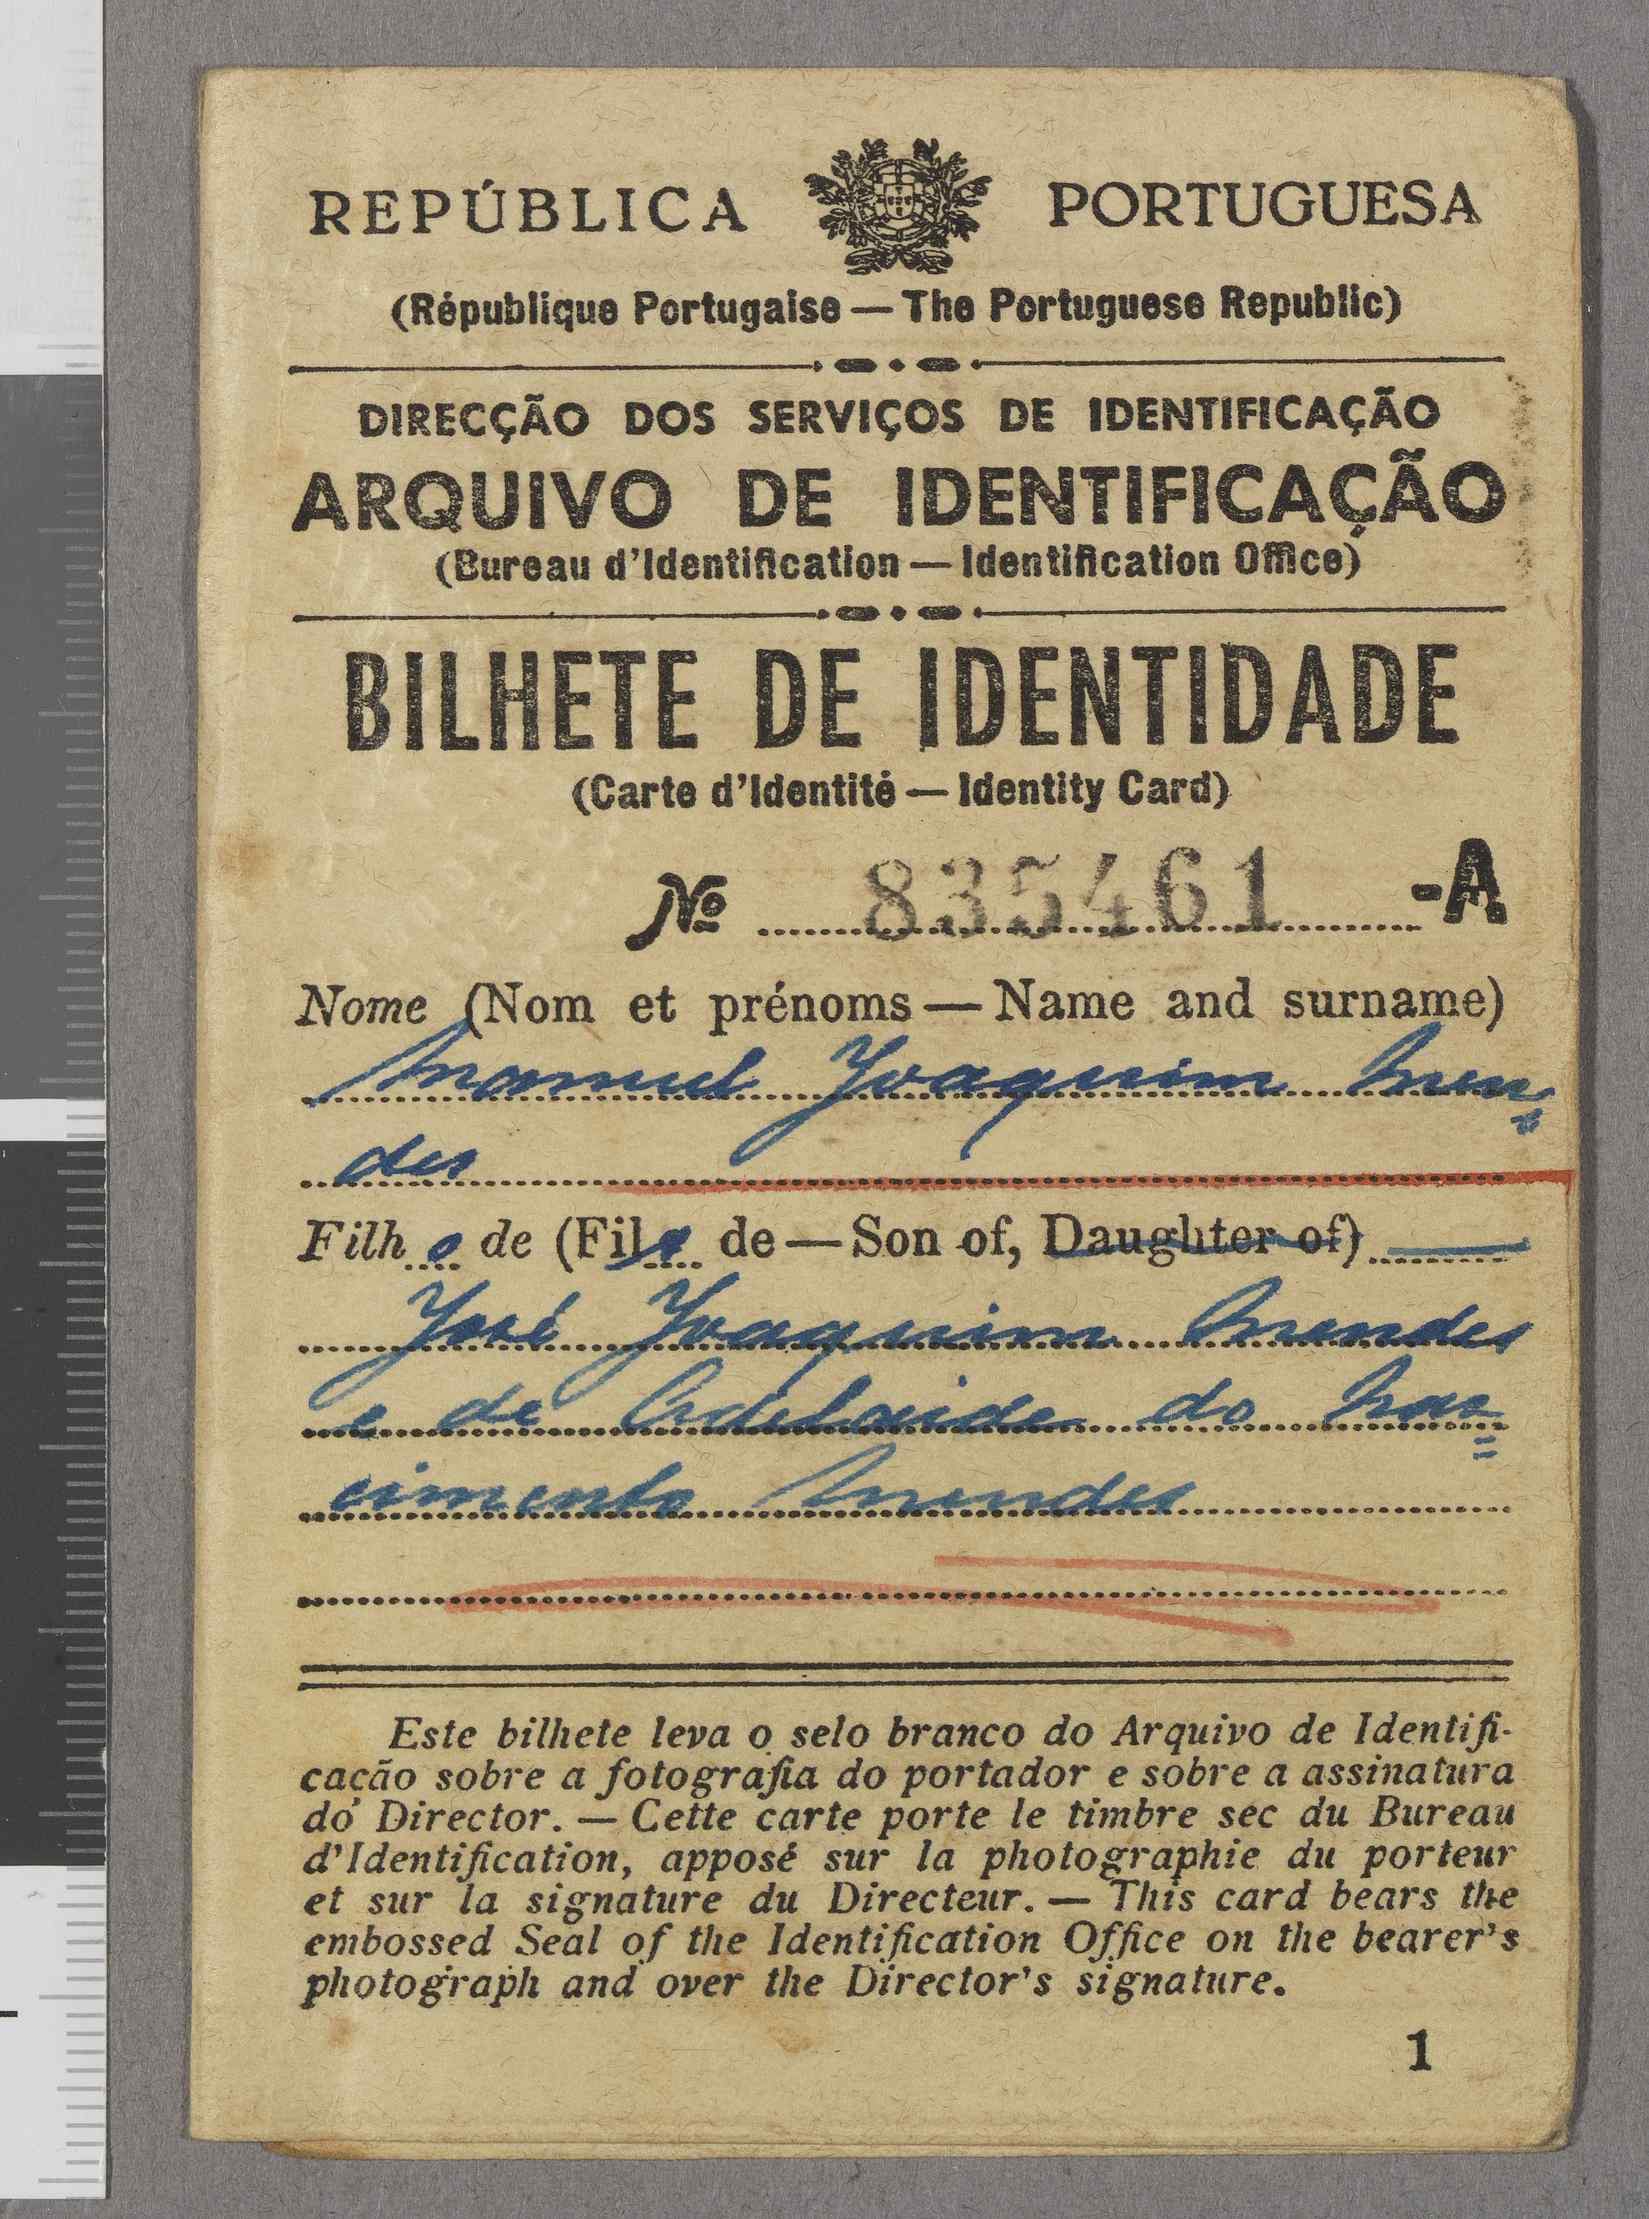 REPÚBLICA PORTUGUESA
(République Portugaise — The Portuguese Republic)
DIRECÇÃO DOS SERVIÇOS DE IDENTIFICAÇÃO
ARQUIVO DE IDENTIFICAÇÃO
(Bureau d'Identification — Identification Office)
BILHETE DE IDENTIDADE
(Carte d'Identité — Identity Card)
Nº 835461 -A
Nome (Nom et prénoms — Name and surname)
Manuel Joaquim Men=
des
Filho de (Fils de — Son of, Daughter of)
José Joaquim Mendes
e de Adelaide do Nas=
cimento Mendes
Este bilhete leva o selo branco do Arquivo de Identifi-
cação sobre a fotografia do portador e sobre a assinatura
do Director. — Cette carte porte le timbre sec du Bureau
d'Identification, apposé sur la photographie du porteur
et sur la signature du Directeur. — This card bears the
embossed Seal of the Identification Office on the bearer's
photograph and over the Director's signature.
1